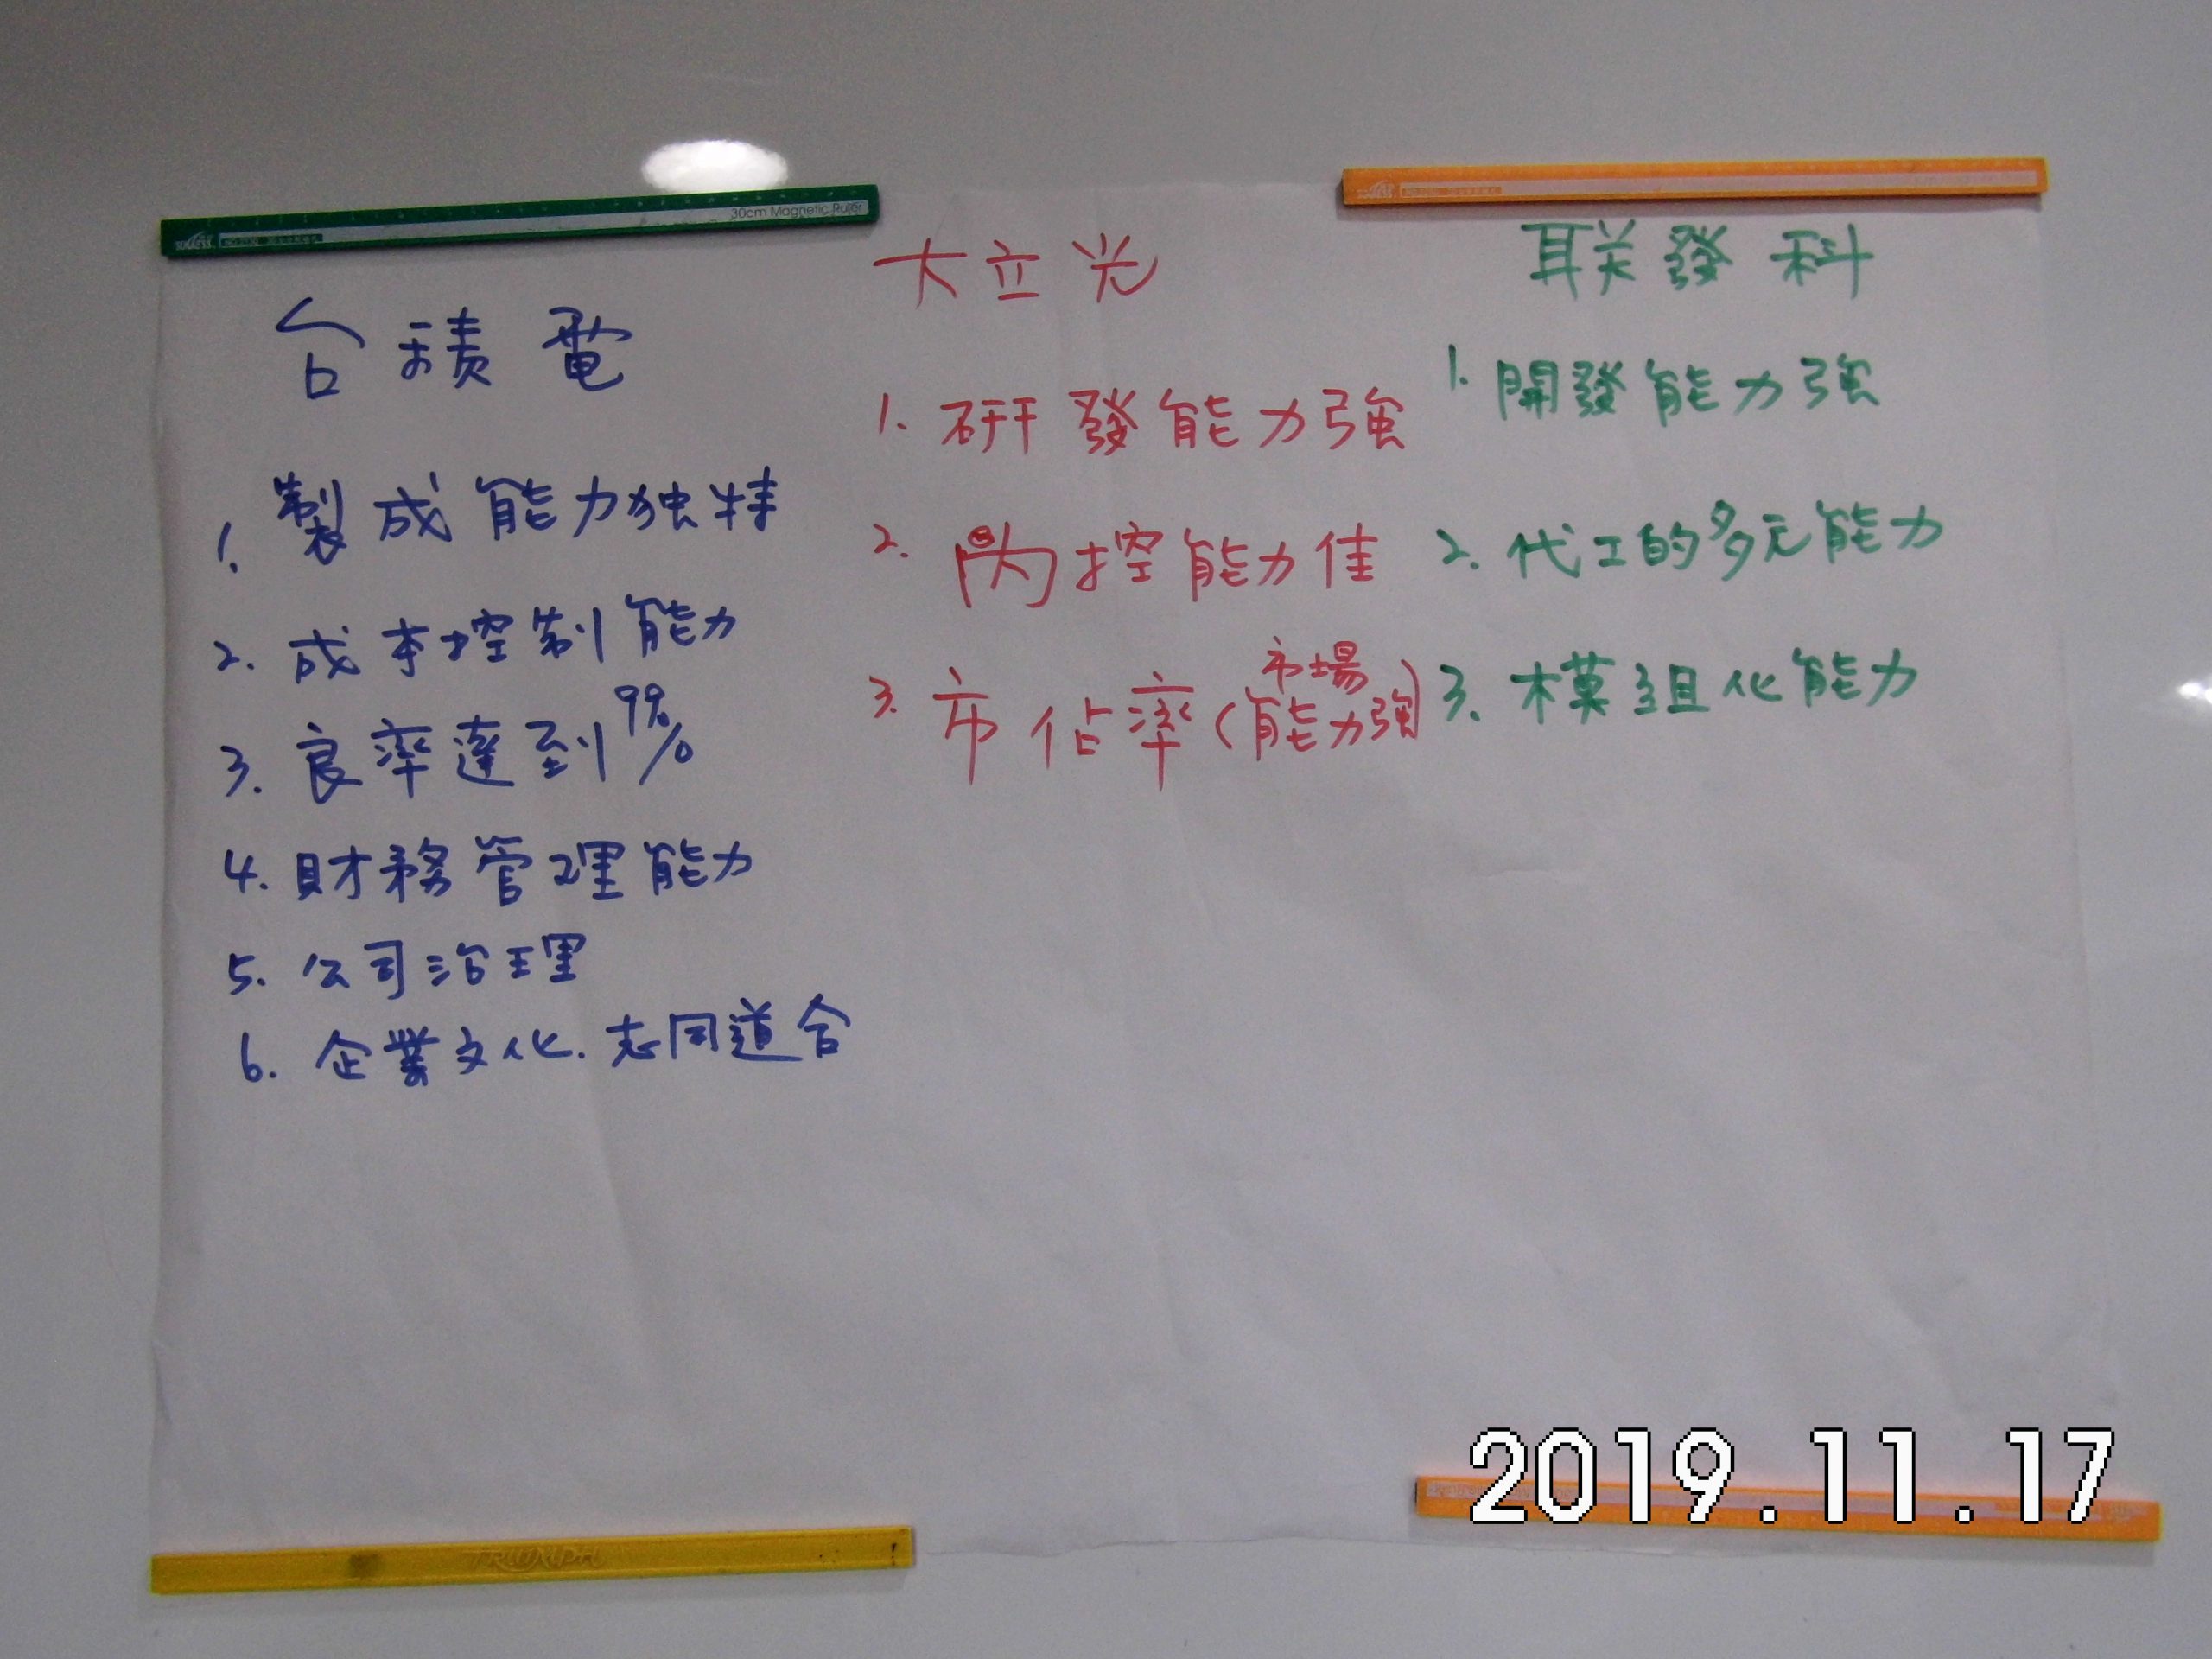 30cm Magnetic Ruler
台積電
1. 製成能力独特
2. 成本控制能力
3. 良率達到99%
4. 財務管理能力
5. 公司治理
6. 企業文化. 志同道合
大立光
1. 研發能力強
2. 內控能力佳
3. 市佔率(市場能力強)
联發科
1. 開發能力強
2. 代工的多元能力
3. 模組化能力
TRIUMPH
2019.11.17